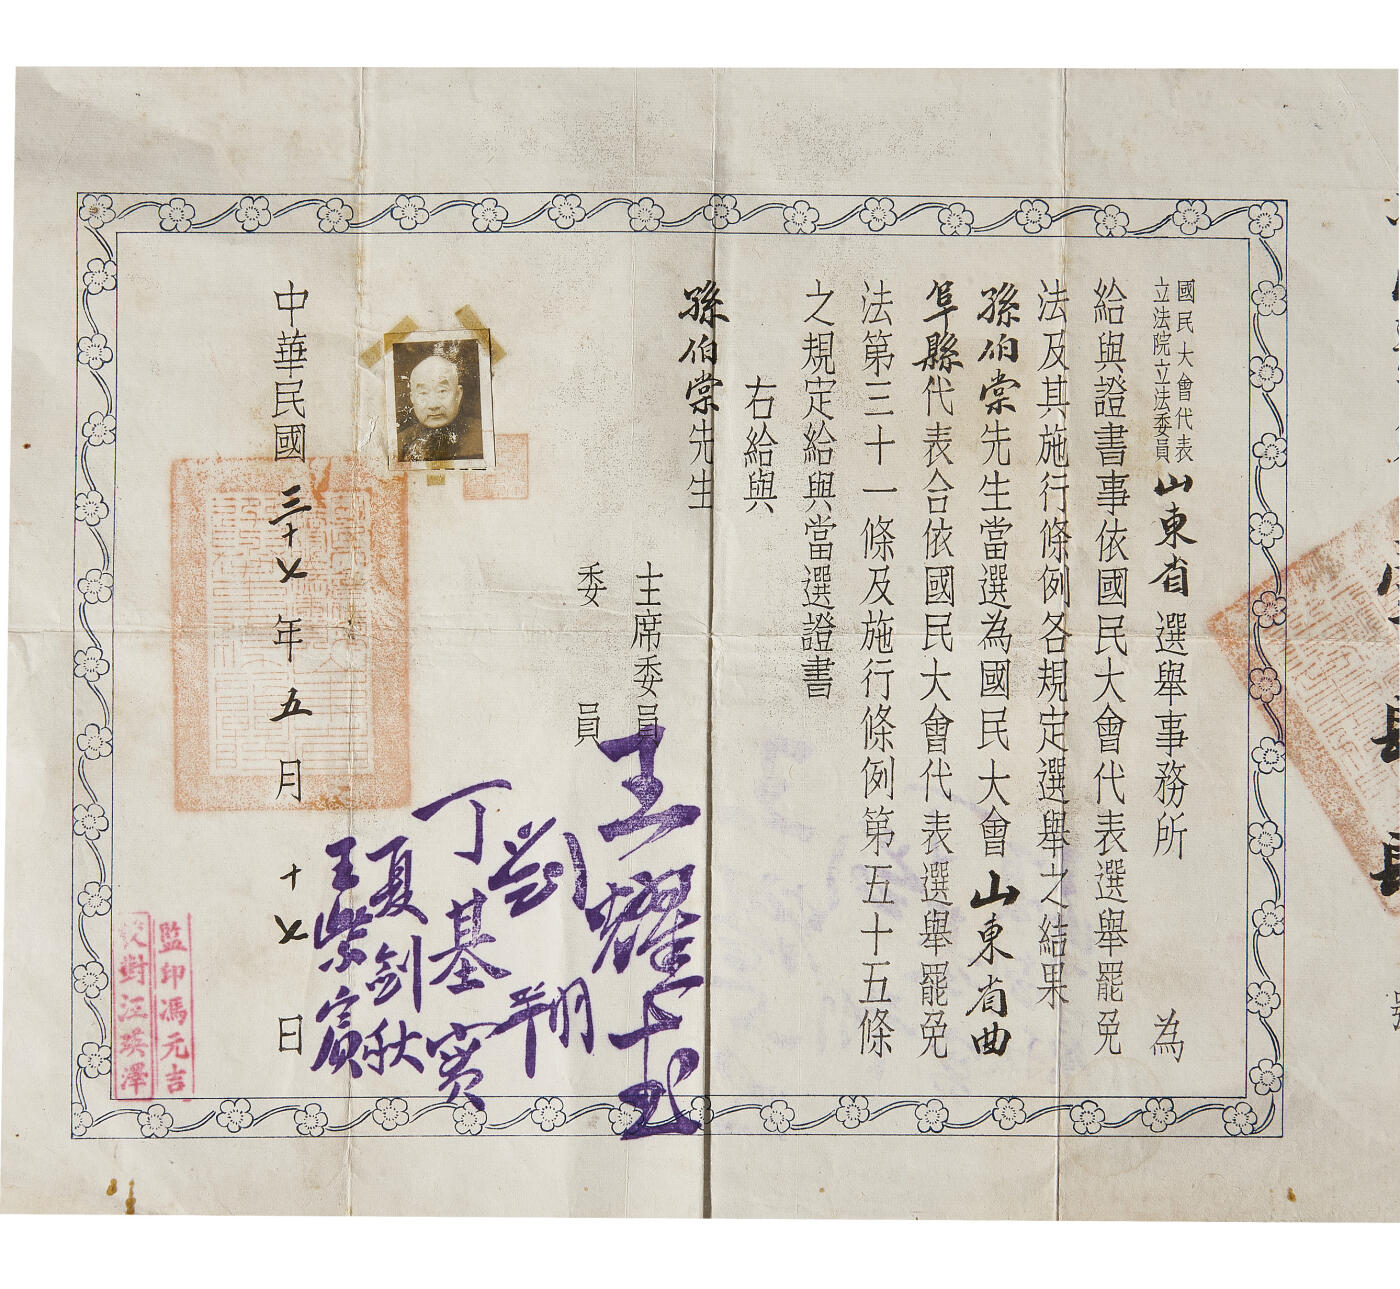 國民大會代表
立法院立法委員
山東省選舉事務所 為
給與證書事依國民大會代表選舉罷免
法及其施行條例各規定選舉之結果
孫伯棠先生當選為國民大會山東省曲
阜縣代表合依國民大會代表選舉罷免
法第三十一條及施行條例第五十五條
之規定給與當選證書
右給與
孫伯棠先生
主席委員 王耀武
委員
劉翔
丁基實
夏劍秋
王崇賓
中華民國三十七年五月十七日
監印馮元吉
校對江瑛澤